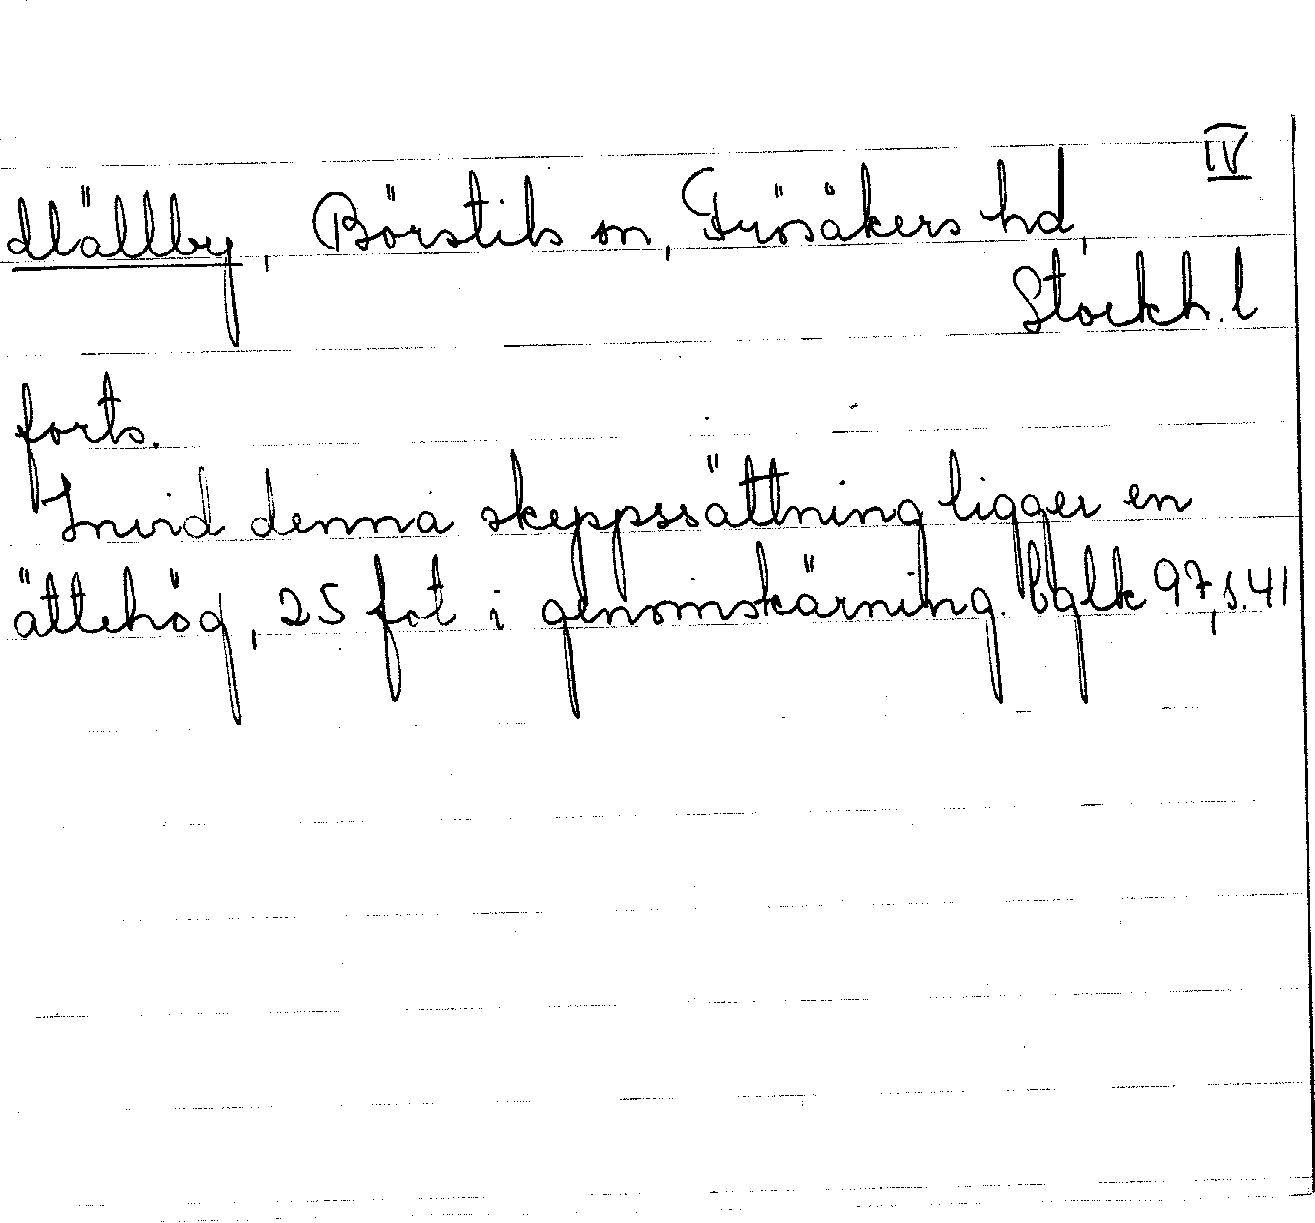 IV
Mällby, Börstils sn, Frösäkers hd,
Stockh. l
forts.
Invid denna skeppssättning ligger en
ättehög, 25 fot i genomskärning. bglk 97, s. 41